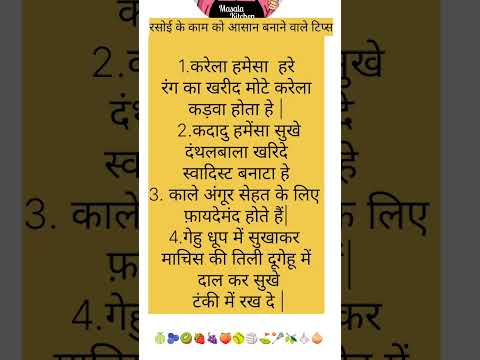 Masala
Kitchen
रसोई के काम को आसान बनाने वाले टिप्स
1.करेला हमेसा हरे
रंग का खरीद मोटे करेला
कड़वा होता हे |
2.कदादु हमेंसा सुखे
दंथलबाला खरिदे
स्वादिस्ट बनाटा हे
3. काले अंगूर सेहत के लिए
फ़ायदेमंद होते हैं|
4.गेहु धूप में सुखाकर
माचिस की तिली दूगेहू में
दाल कर सुखे
टंकी में रख दे |